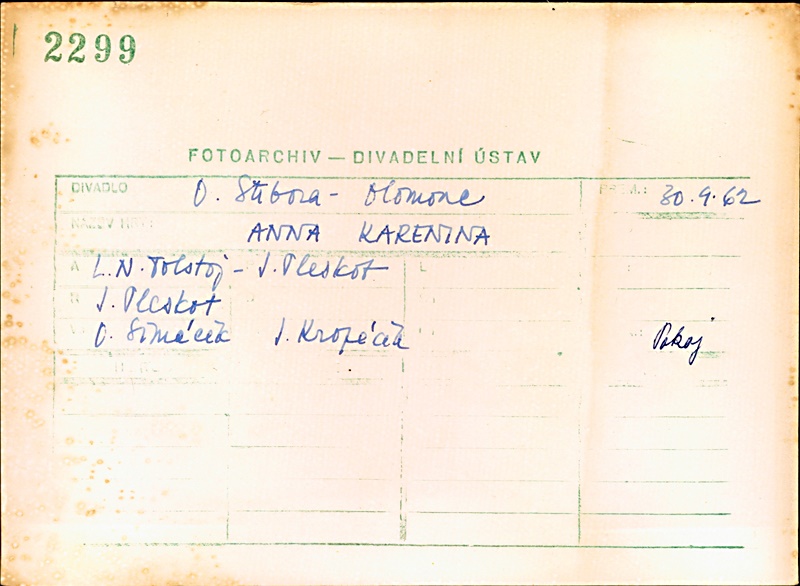 2299
FOTOARCHIV — DIVADELNÍ ÚSTAV
DIVADLO O. Stibora - Olomouc PREM.: 30.9.62
NÁZEV HRY: ANNA KARENINA
A L.N. Tolstoj - J. Pleskot
R J. Pleskot
O. Šimáček J. Kropáček Pokoj